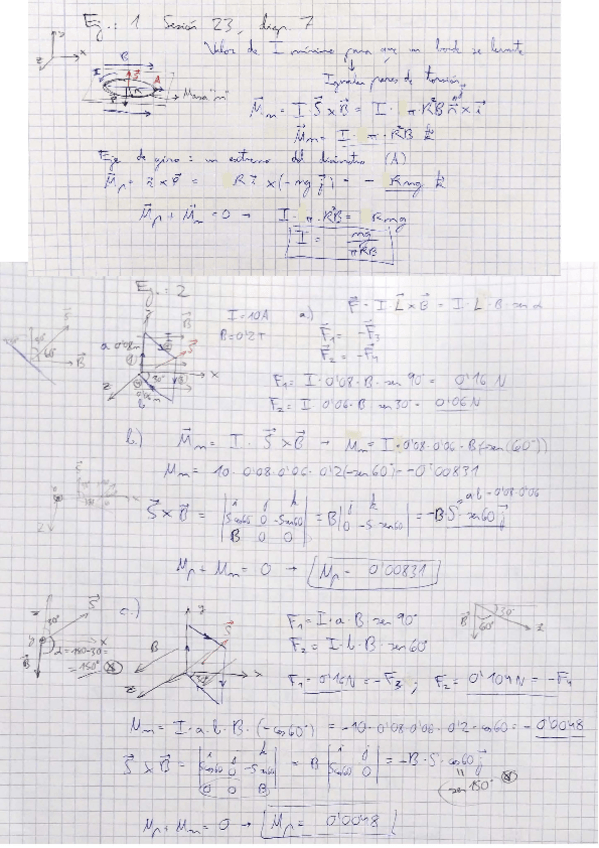 Ej.: 1 Sesión 23, diap. 7
Valor de I mínimo para que un borde se levante
Igualar pares de torsión
y
z x
B
I
S
A
R
P
Masa "m"
M⃗m = I·S⃗×B⃗ = I·π·R²B n⃗×i⃗
M⃗m = I·π·R²B k⃗
Eje de giro: un extremo del diámetro (A)
M⃗p = r⃗×P⃗ = R i⃗ ×(-mg j⃗) = - Rmg k⃗
M⃗p + M⃗m = 0 → I·π·R²B = Rmg
I = mg/πRB
Ej.: 2
I = 10A
B = 0'2T
a.) F⃗ = I·L⃗×B⃗ = I·L·B·sen α
F⃗1 = -F⃗3
F⃗2 = -F⃗4
F1 = I·0'08·B·sen 90° = 0'16 N
F2 = I·0'06·B sen 30° = 0'06 N
a 0'08m
30°
0'06m
b
x
z
60°
B⃗
S⃗
b.) M⃗m = I·S⃗×B⃗ → Mm = I·0'08·0'06·B(-sen(60°))
Mm = 10·0'08·0'06·0'2(-sen60°) = -0'00831
S⃗×B⃗ = |i j k; S cos60 0 -S sen60; B 0 0| = B|j k; 0 -S sen60| = -B·S·sen60 j⃗
a·b = 0'08·0'06
Mp + Mm = 0 → Mp = 0'00831
c.) F1 = I·a·B·sen 90°
F2 = I·b·B·sen 60°
F1 = 0'16N = -F3 ; F2 = 0'104N = -F4
30°
S⃗
x
B⃗
α = 180-30 =
= 150° ⊗
y
B
z x
30°
B⃗ 30°
60° x
Mm = I·a·b·B·(-cos60°) = -10·0'08·0'06·0'2·cos60 = -0'0048
S⃗×B⃗ = |i j k; S cos60 0 -S sen60; 0 0 B| = B |i j; S cos60 0| = -B·S·cos60 j⃗
(sen 150° ⊗
Mp + Mm = 0 → Mp = 0'0048